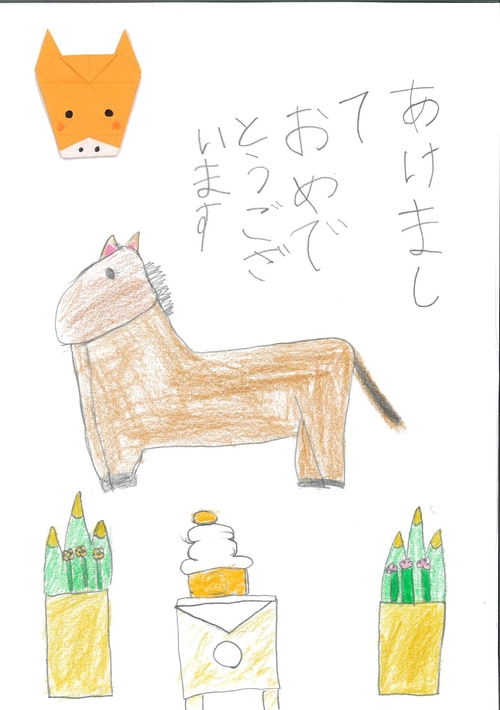 あけまし
て
おめで
とうござ
います